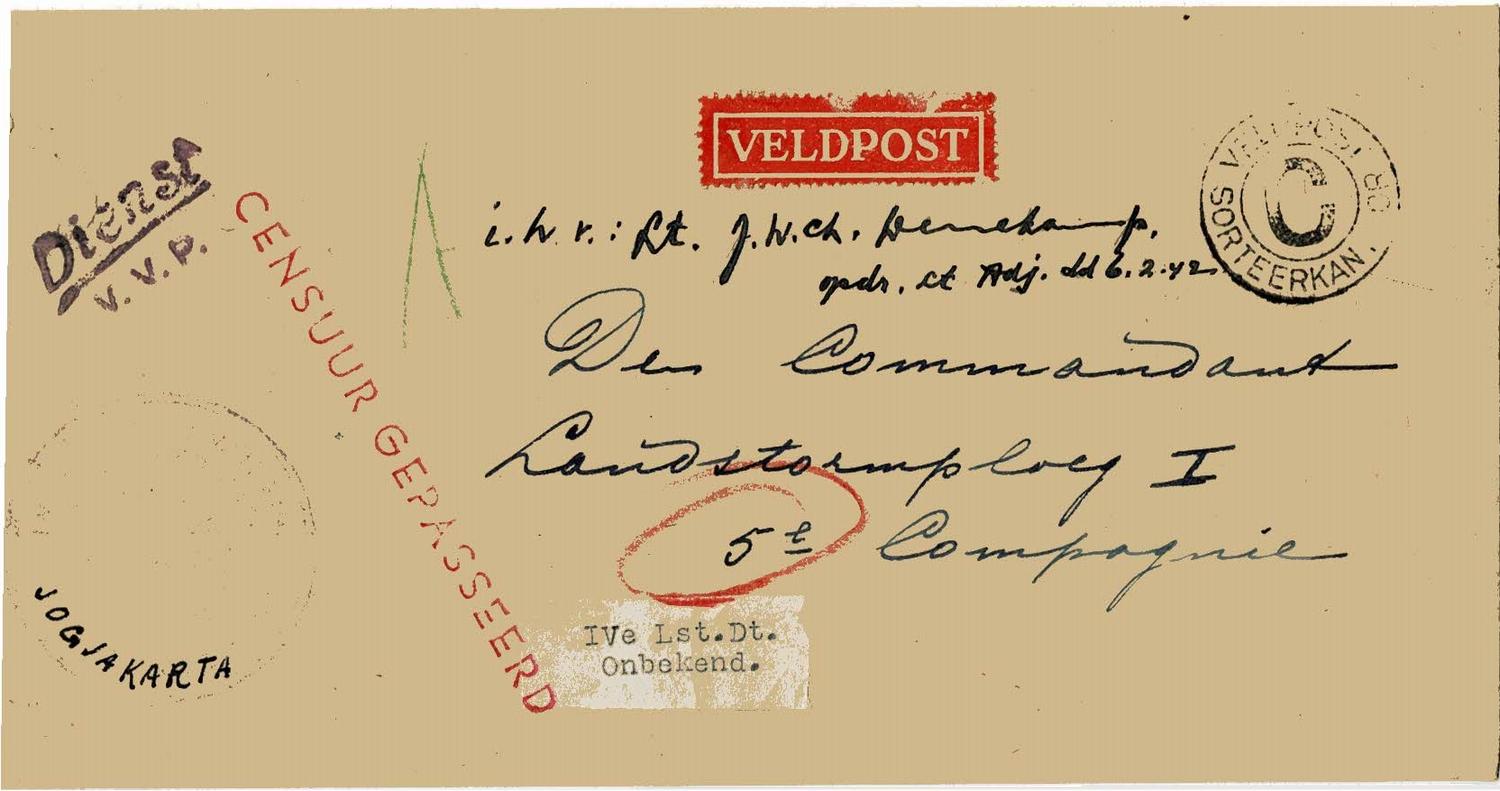 VELDPOST
Dienst
V.V.P.
CENSUUR GEPASSEERD
A
VELDPOST
C
SORTEERKAN.
i.h.v.: Lt. J.W.Ch. Denekamp.
opdr. ct Adj. dd 6.2.42
Den Commandant
Landstormploeg I
5e Compagnie
IVe Lst.Dt.
Onbekend.
JOGJAKARTA